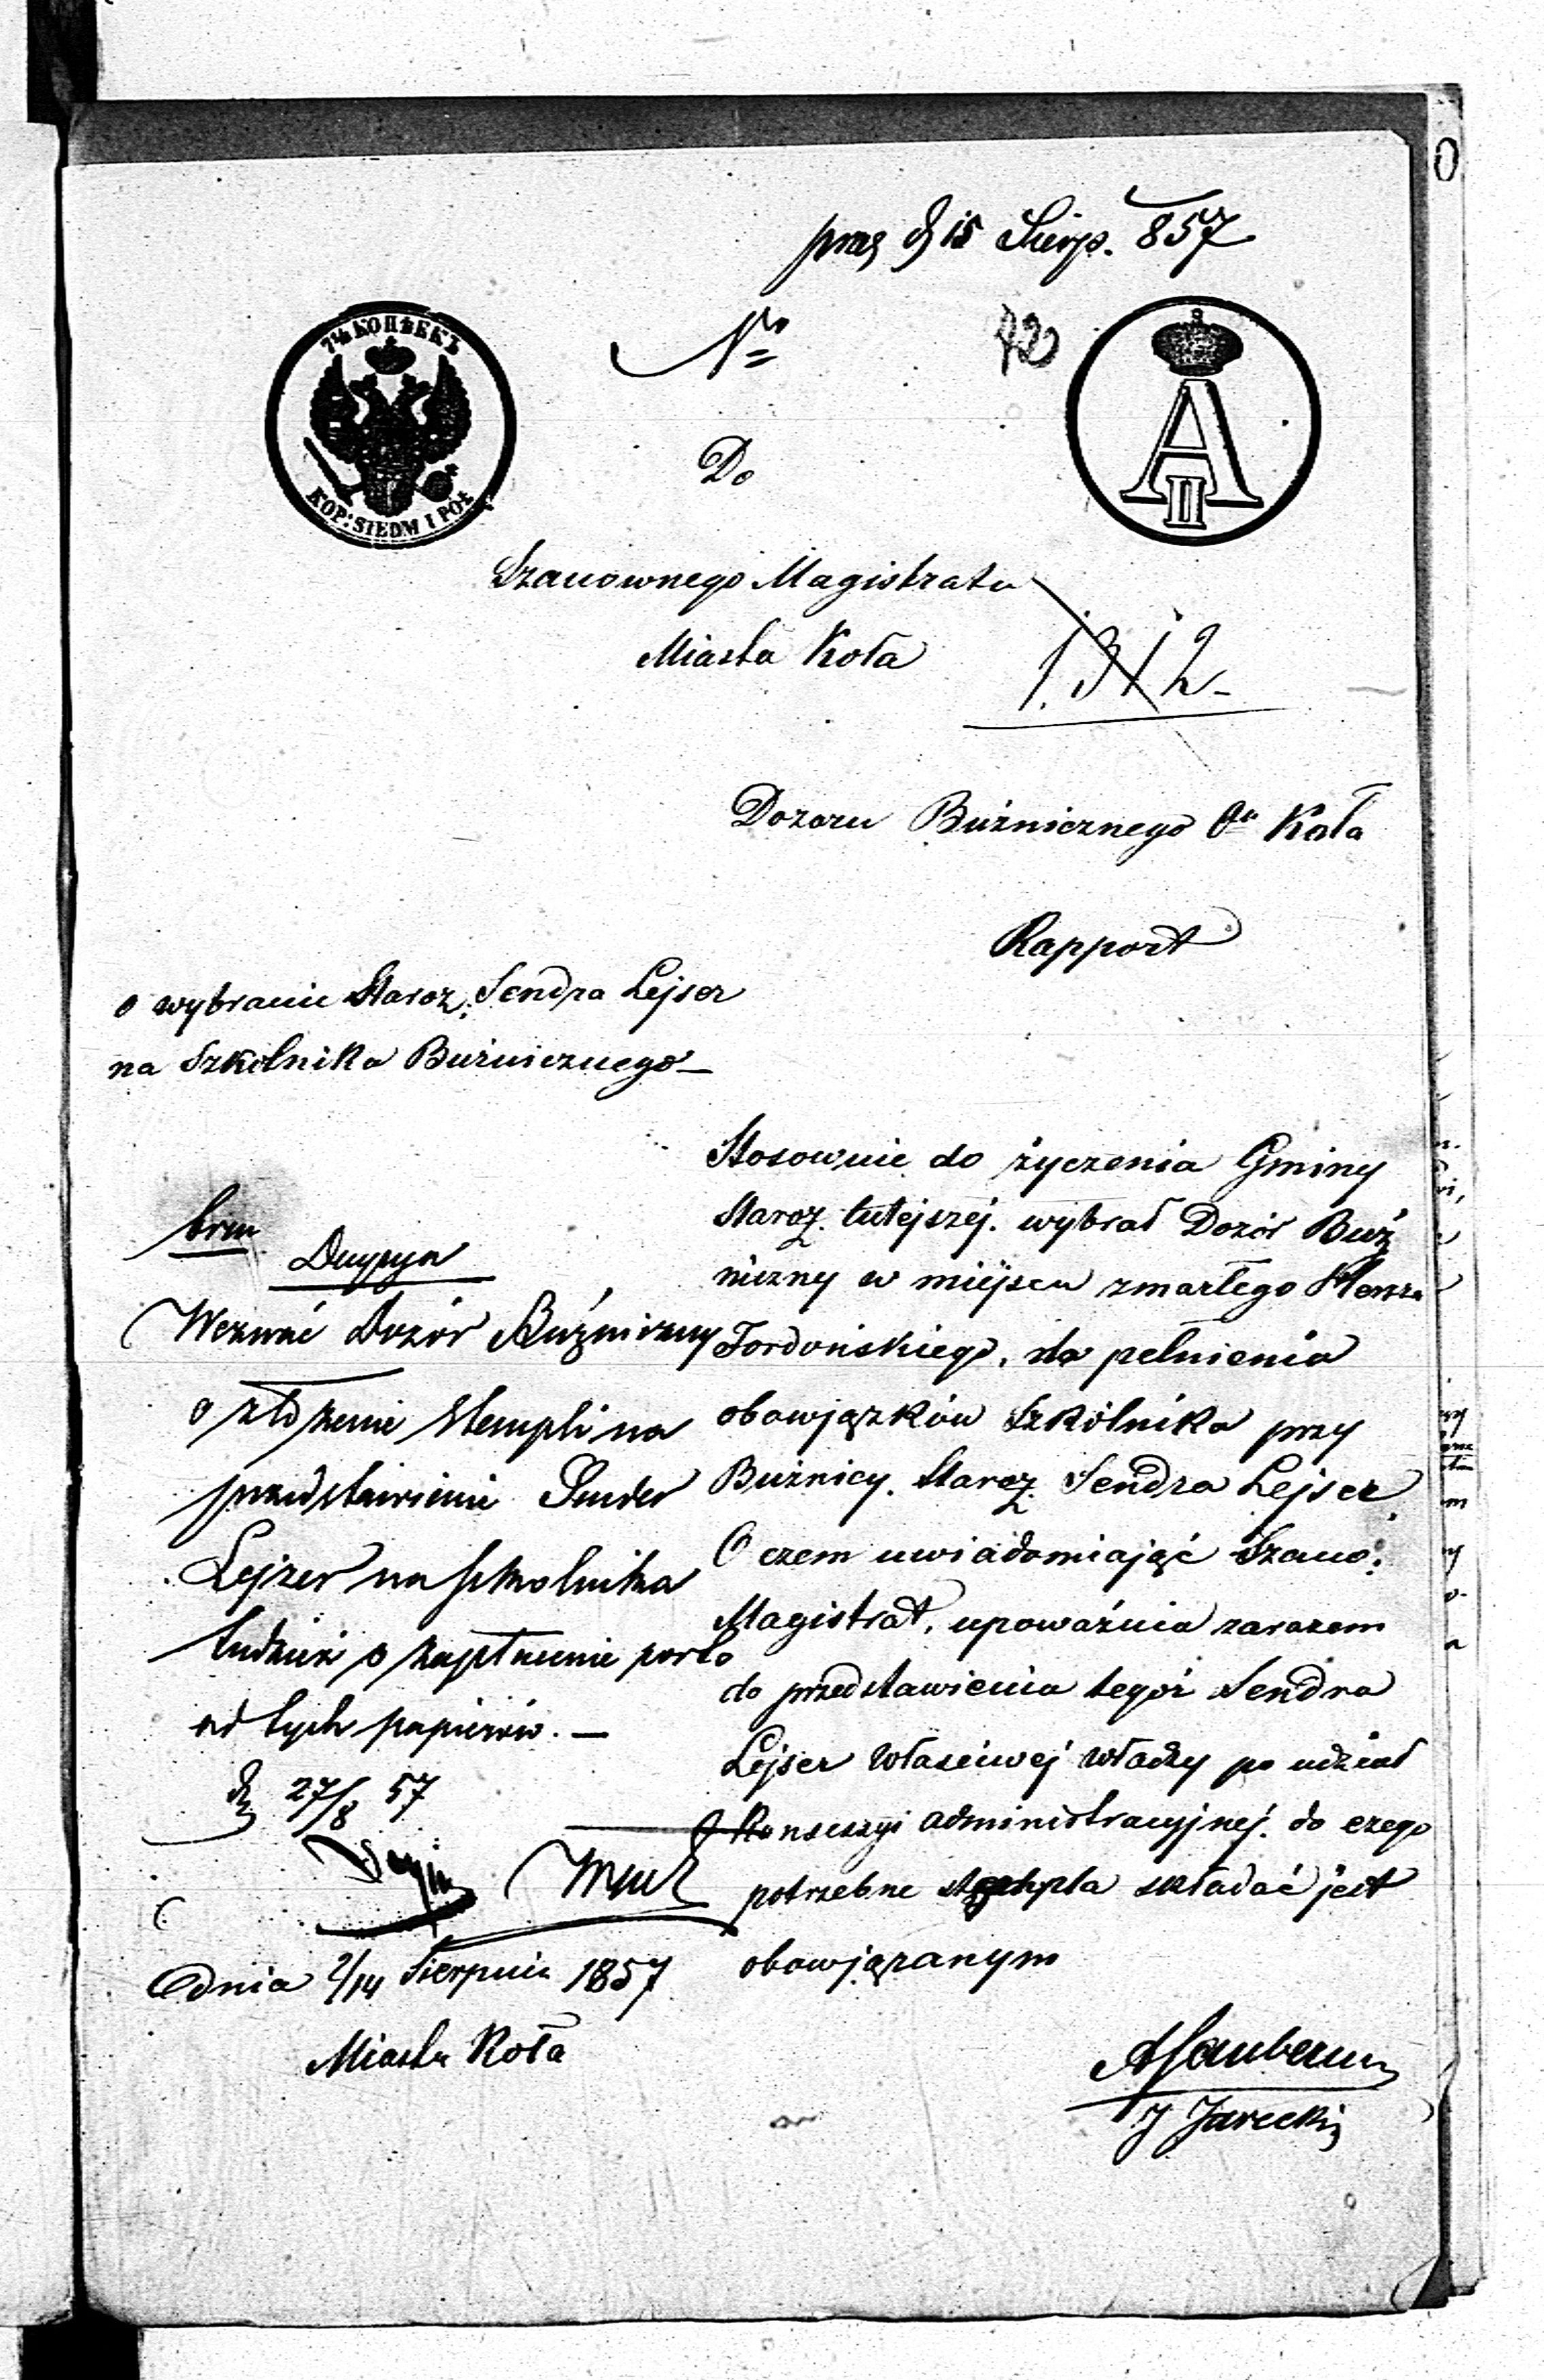 prez d 15 Sierp. 857
7½ КОПѢЕКЪ
KOP: SIEDM I PÓŁ
No
42
A
II
Do
Szanownego Magistratu
Miasta Koła
1312
Dozoru Buźnicznego Koła
Rapport
o wybranie Staroz. Sendra Lejser
na Szkolnika Buźnicznego
Stosownie do życzenia Gminy
Staroz. tutejszéj. wybrał Dozór Buź
niczny w miejscu zmarłego Hersza
Fordońskiego, do pełnienia
obowjązków Szkólnika przy
Buźnicy. Staroz. Sendra Lejser
O czem uwiadomiając Szano:
Magistrat, upoważnia zarazem
do przedstawienia tegoż Sendra
Lejser Właściwej władzy po udział
Konsenszyi administracyjnej. do czego
potrzebne stempla składać jest
obowjązanym
brm
Decyzya
Wezwać Dozór Buźniczny
o złożenie Stempli na
przedstawienie Sender
Lejzer na szkolnika
tudzież o zapłacenie porto
od tych papierów. —
d 27/8 57
Dnia 2/14 Sierpnia 1857
Miasta Koła
J Jarecki